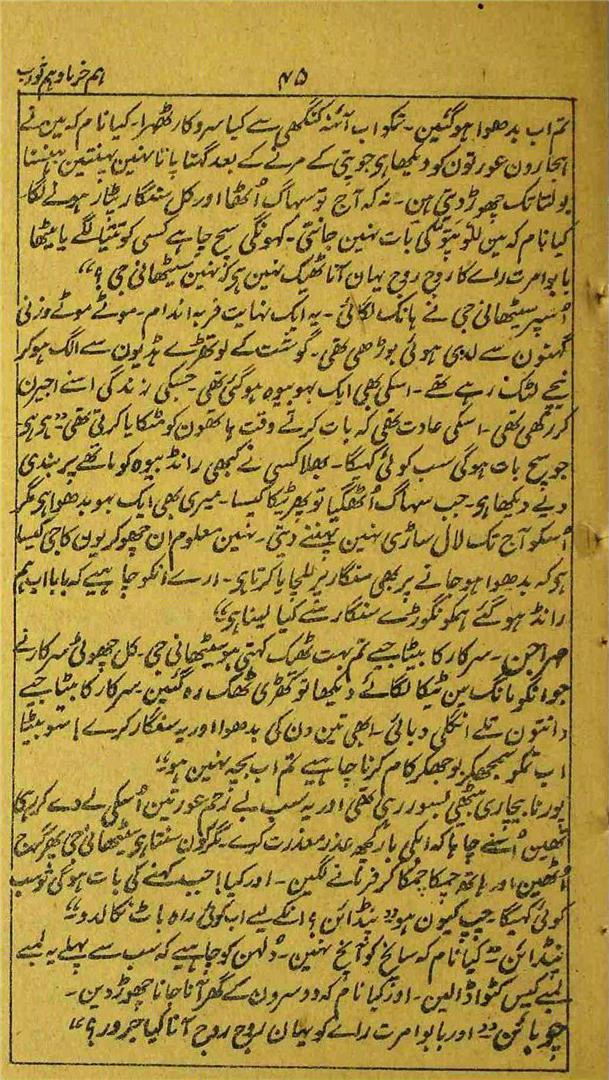 ہم خرما و ہم ثواب
۴۵
تم اب بدھوا ہوگئین۔ تمکو اب آئنہ کنگھی سے کیا سروکار ٹھہرا۔ کیا نام کہ مین نے
ہجارون عورتون کو دیکھا ہی جو پتی کے مرنے کے بعد گہنا پاتا نہین پہنتین ہنسنا
بولنا تک چھوڑ دیتی ہن۔ نہ کہ آج تو سہاگ اُٹھا اور کل سنگار پٹار ہونے لگا
کیا نام کہ مین للو پتو کی بات نہین جانتی۔ کہونگی سچ چاہے کسی کو تیتا لگے یا میٹھا
بابو امرت راے کا روج روج یہان آنا ٹھیک نہین ہی کہ نہین سیٹھانی جی ؟"
اُسپر سیٹھانی جی نے ہانک لگائی۔ یہ ایک نہایت فربہ اندام۔ موٹے موٹے وزنی
گہنون سے لدی ہوئی بوڑھی تھی۔ گوشت کے لوتھڑے ہڈیون سے الگ ہوکر
نیچے لٹک رہے تھے۔ اسکی بھی ایک بہو بیوہ ہوگئی تھی۔ جسکی زندگی اسنے اجیرن
کر رکھی تھی۔ اسکی عادت تھی کہ بات کرتے وقت ہاتھون کو مٹکایا کرتی تھی "ہی ہی۔
جو سچ بات ہوگی سب کوئی کہیگا۔ بھلا کسی نے کبھی رانڈ بیوہ کو ماتھے پر بندی
دیے دیکھا ہی۔ جب سہاگ اُٹھ گیا تو پھر ٹیکا کیسا۔ میری بھی ایک بہو بدھوا ہی مگر
اُسکو آج تک لال ساڑی نہین پہننے دیتی۔ نہین معلوم ان چھوکریون کا جی کیسا
ہی کہ بدھوا ہو جانے پر بھی سنگار پر للچایا کرتا ہی۔ ارے انکو چاہیے کہ بابا اب ہم
رانڈ ہوگئے ہمکو نگوڑے سنگار سے کیا لینا ہی"
مہراجن۔ سرکار کا بیٹا جیے تم بہت ٹھیک کہتی ہو سیٹھانی جی۔ کل چھوٹی سرکار نے
جو انکو مانگ مین ٹیکا لگائے دیکھا تو کھڑی ٹھک رہ گئین۔ سرکار کا بیٹا جیے
دانتون تلے انگلی دبائی۔ ابھی تین دن کی بدھوا اور یہ سنگار کرے! سو بیٹا
اب تمکو سمجھ بوجھکر کام کرنا چاہیے تم اب بچہ نہین ہو"
پورنا بیچاری بیٹھی بسور رہی تھی اور یہ سب بے رحم عورتین اُسکی لے دے کر رہی
تھین اُسنے چاہا کہ ابکی بار کچھ عذر معذرت کرے۔ مگر کون سنتا ہی سیٹھانی جی پھر گرج
اُٹھین اور ہاتھ چمکا چمکا کر فرمانے لگین۔ اور کیا! جب کہنے کی بات ہوگی تو سب
کوئی کہیگا۔ چپ کیون ہو پنڈائن ؟ انکے لیے اب کوئی راہ باٹ نکالدو"
پنڈائن "کیا نام کہ سانچ کو آنچ نہین۔ دلہن کو چاہیے کہ سب سے پہلے یہ لمبے
لمبے کیس کٹوا ڈالین۔ اور کیا نام کہ دوسرون کے گھر آنا جانا چھوڑ دین۔
چوبائن "اور بابو امرت راے کو یہان روج روج آنا کیا جرور ؟"